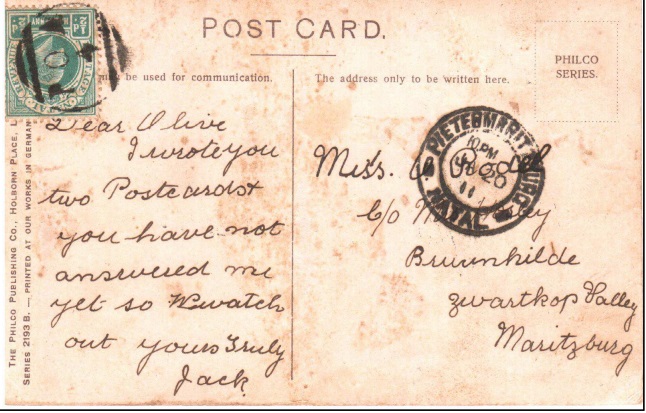 POST CARD.
be used for communication.
The address only to be written here.
PHILCO
SERIES.
THE PHILCO PUBLISHING CO., HOLBORN PLACE,
SERIES 2193 B. — PRINTED AT OUR WORKS IN GERMAN
Dear Olive
I wrote you
two Postcards &
you have not
answered me
yet so watch
out yours Truly
Jack
Miss. O.
c/o
Brunnhilde
Zwartkop Valley
Maritzburg
PIETERMARITZBURG
10 PM
20
11
NATAL